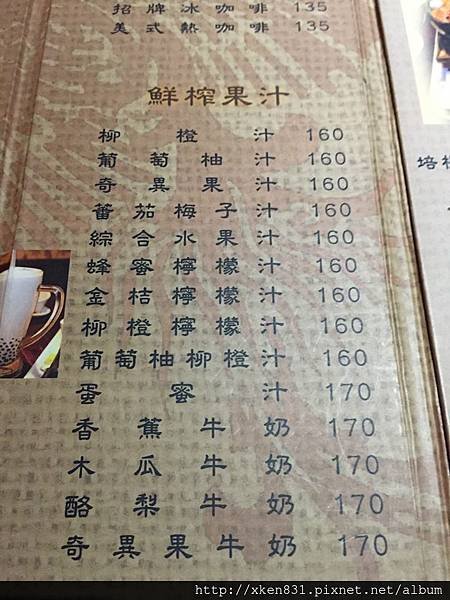 招牌冰咖啡 135
美式熱咖啡 135
鮮榨果汁
柳橙汁 160
葡萄柚汁 160
奇異果汁 160
蕃茄梅子汁 160
綜合水果汁 160
蜂蜜檸檬汁 160
金桔檸檬汁 160
柳橙檸檬汁 160
葡萄柚柳橙汁 160
蛋蜜汁 170
香蕉牛奶 170
木瓜牛奶 170
酪梨牛奶 170
奇異果牛奶 170
培
http://xken831.pixnet.net/album